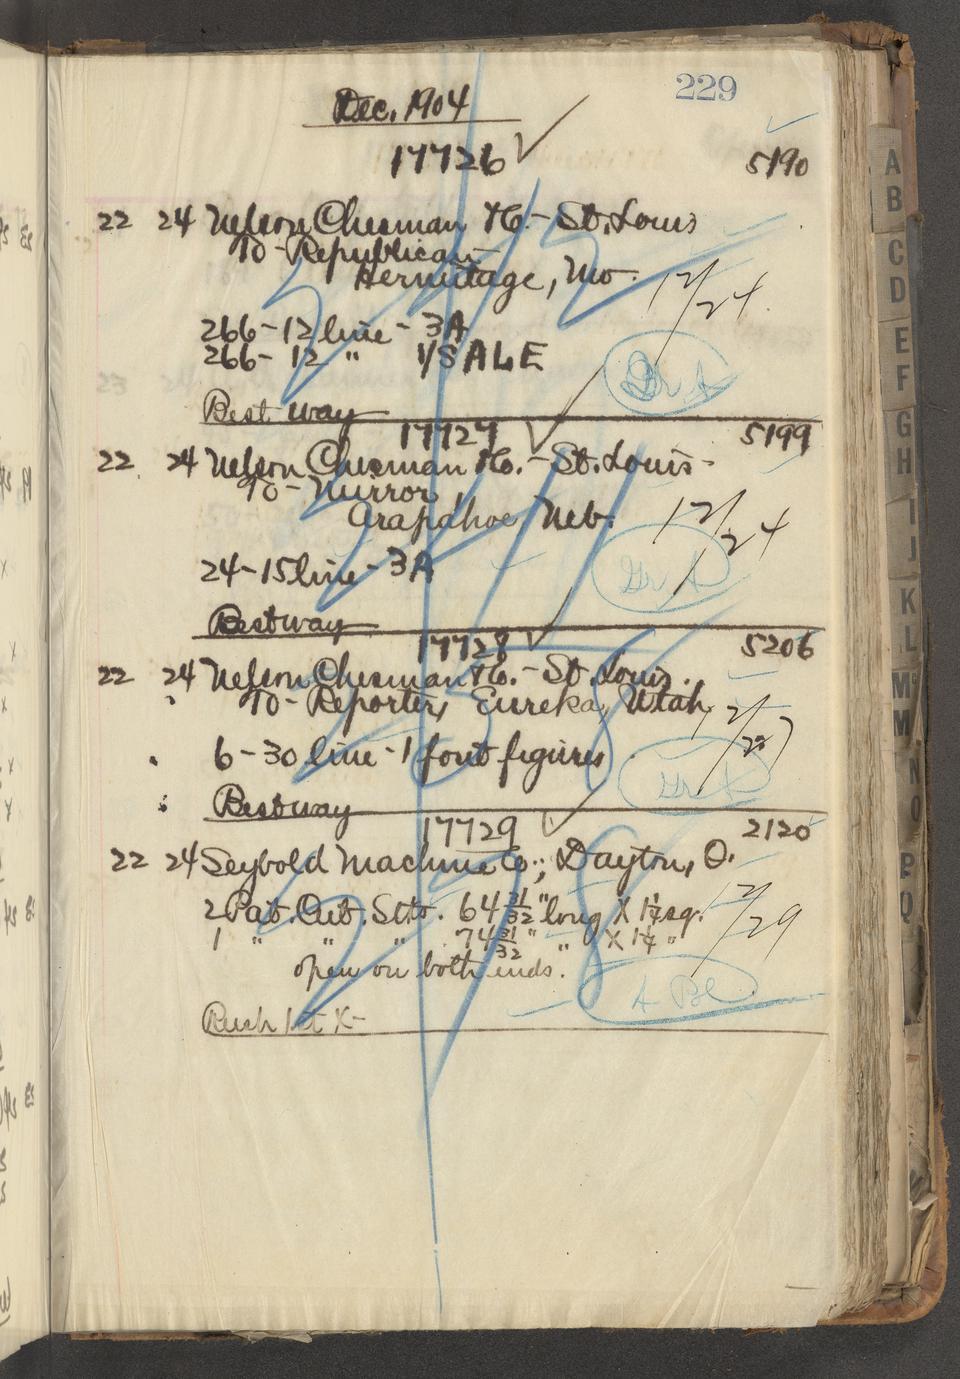 229
Dec. 1904
17726 5190
22 24 Nelson Chesman & Co. - St. Louis
To - Republican
Hermitage, Mo. 12/24
266 - 12 line - 3A
266 - 12 " 1/SALE
Gr A
Best way
17727 5199
22 24 Nelson Chesman & Co. - St. Louis -
To - Mirror,
Arapahoe, Neb. 12/24
24 - 15 line - 3A
Gr A
Best way
17728 5206
22 24 Nelson Chesman & Co. - St. Louis.
To - Reporter, Eureka, Utah 12/27
6 - 30 line - 1 font figures
Gr A
Best way
17729 2120
22 24 Seybold Machine Co., Dayton, O.
2 Pat. Cut. Stks. 64 31/32" long X 1 1/4 sq. 12/29
1 " " " 74 31/32" " X 1 1/4 "
open on both ends.
A Bl
Rush 1st X -
A
B
C
D
E
F
G
H
I
J
K
L
Mc
M
N
O
P
Q